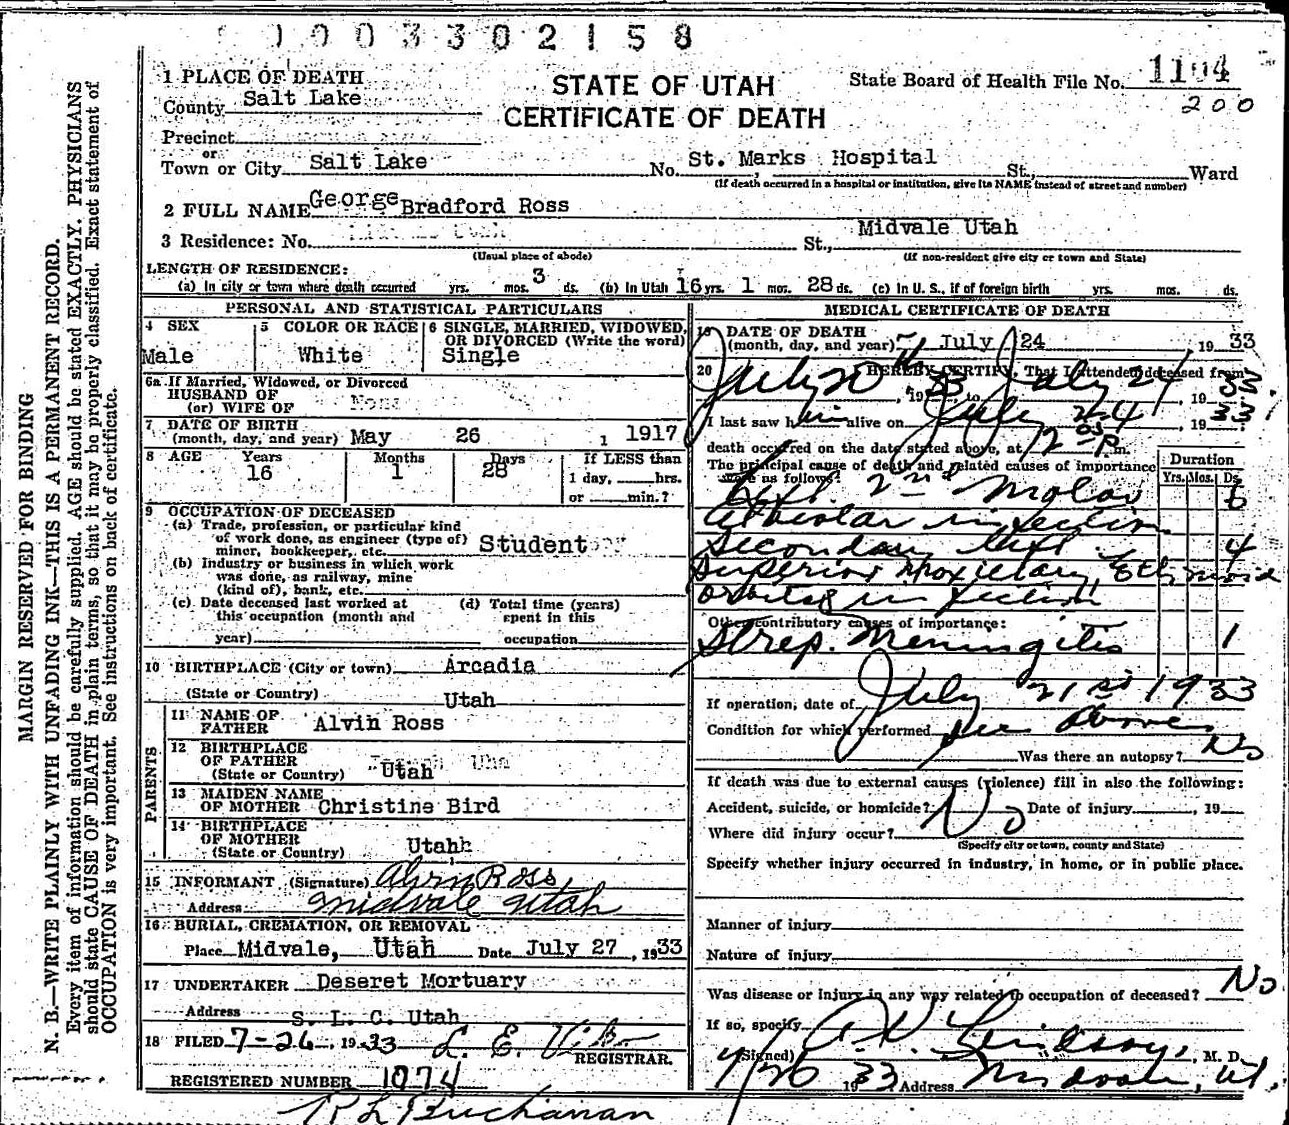 1003302158
1 PLACE OF DEATH
STATE OF UTAH
CERTIFICATE OF DEATH
State Board of Health File No. 1104
200
County Salt Lake
Precinct
or
Town or City Salt Lake No. St. Marks Hospital St., Ward
(If death occurred in a hospital or institution, give its NAME instead of street and number)
2 FULL NAME George Bradford Ross
3 Residence: No. St., Midvale Utah
(Usual place of abode) (If non-resident give city or town and State)
LENGTH OF RESIDENCE:
(a) In city or town where death occurred yrs. mos. 3 ds. (b) In Utah 16 yrs. 1 mos. 28 ds. (c) In U. S., if of foreign birth yrs. mos. ds.
PERSONAL AND STATISTICAL PARTICULARS
4 SEX 5 COLOR OR RACE 6 SINGLE, MARRIED, WIDOWED, OR DIVORCED (Write the word)
Male White Single
6a If Married, Widowed, or Divorced
HUSBAND OF
(or) WIFE OF
7 DATE OF BIRTH
(month, day, and year) May 26 , 1917
8 AGE Years Months Days If LESS than
16 1 28 1 day, hrs.
or min.?
9 OCCUPATION OF DECEASED
(a) Trade, profession, or particular kind
of work done, as engineer (type of)
miner, bookkeeper, etc. Student
(b) Industry or business in which work
was done, as railway, mine
(kind of), bank, etc.
(c) Date deceased last worked at (d) Total time (years)
this occupation (month and spent in this
year) occupation
10 BIRTHPLACE (City or town) Arcadia
(State or Country) Utah
PARENTS
11 NAME OF
FATHER Alvin Ross
12 BIRTHPLACE
OF FATHER
(State or Country) Utah
13 MAIDEN NAME
OF MOTHER Christine Bird
14 BIRTHPLACE
OF MOTHER
(State or Country) Utahh
15 INFORMANT (Signature) Alvin Ross
Address Midvale Utah
16 BURIAL, CREMATION, OR REMOVAL
Place Midvale, Utah Date July 27, 1933
17 UNDERTAKER Deseret Mortuary
Address S. L. C. Utah
18 FILED 7-26, 1933 L. E.
REGISTRAR.
REGISTERED NUMBER 1074
R L Buchanan
MEDICAL CERTIFICATE OF DEATH
19 DATE OF DEATH
(month, day, and year) July 24 19 33
20 I HEREBY CERTIFY, That I attended deceased from
July 20th, 1933 to July 24, 1933
I last saw him alive on July 24, 1933
death occurred on the date stated above, at p m.
The principal cause of death and related causes of importance
were as follows:
Duration
Yrs. Mos. Ds.
Left 2nd Molar 6
alveolar infection
Secondary left 4
Superior Maxiliary, Ethmoid
orbital infection
Other contributory causes of importance:
Strep. Meningitis 1
If operation, date of July 21st 1933
Condition for which performed See Above
Was there an autopsy? No
If death was due to external causes (violence) fill in also the following:
Accident, suicide, or homicide? No Date of injury , 19
Where did injury occur?
(Specify city or town, county and State)
Specify whether injury occurred in industry, in home, or in public place.
Manner of injury
Nature of injury
Was disease or injury in any way related to occupation of deceased? No
If so, specify
(Signed) Lindsay, M. D.
7/26 1933 Address Midvale, Ut.
MARGIN RESERVED FOR BINDING
N. B.—WRITE PLAINLY WITH UNFADING INK—THIS IS A PERMANENT RECORD.
Every item of information should be carefully supplied. AGE should be stated EXACTLY. PHYSICIANS
should state CAUSE OF DEATH in plain terms, so that it may be properly classified. Exact statement of
OCCUPATION is very important. See instructions on back of certificate.